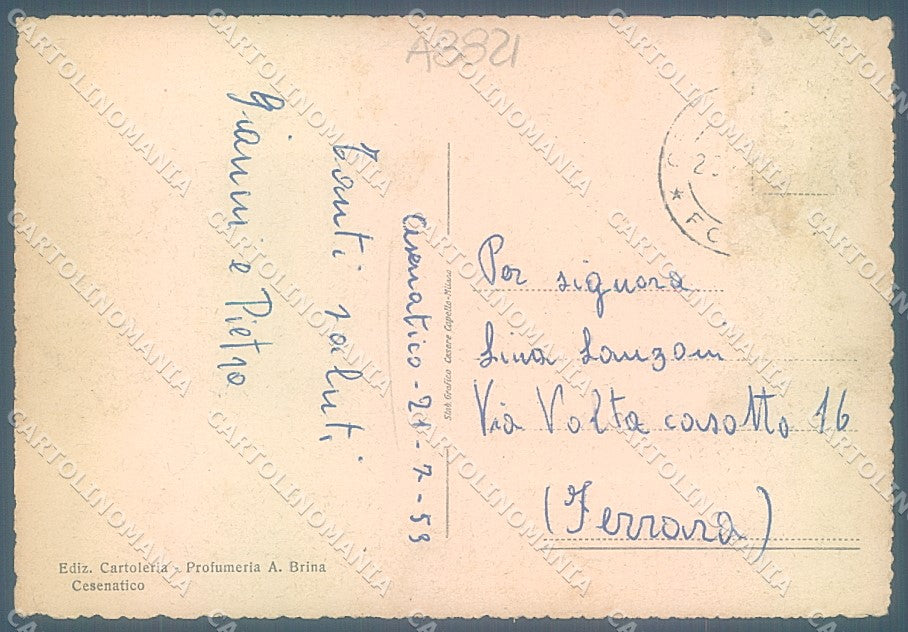 A3821
Cesenatico - 21 - 7 - 59
Tanti saluti.
Gianni e Pietro
Per signora
Lina Lanzoni
Via Volta casotto 16
(Ferrara)
Stab. Grafico Cesare Capello-Milano
Ediz. Cartoleria - Profumeria A. Brina
Cesenatico
* FO
CARTOLINOMANIA